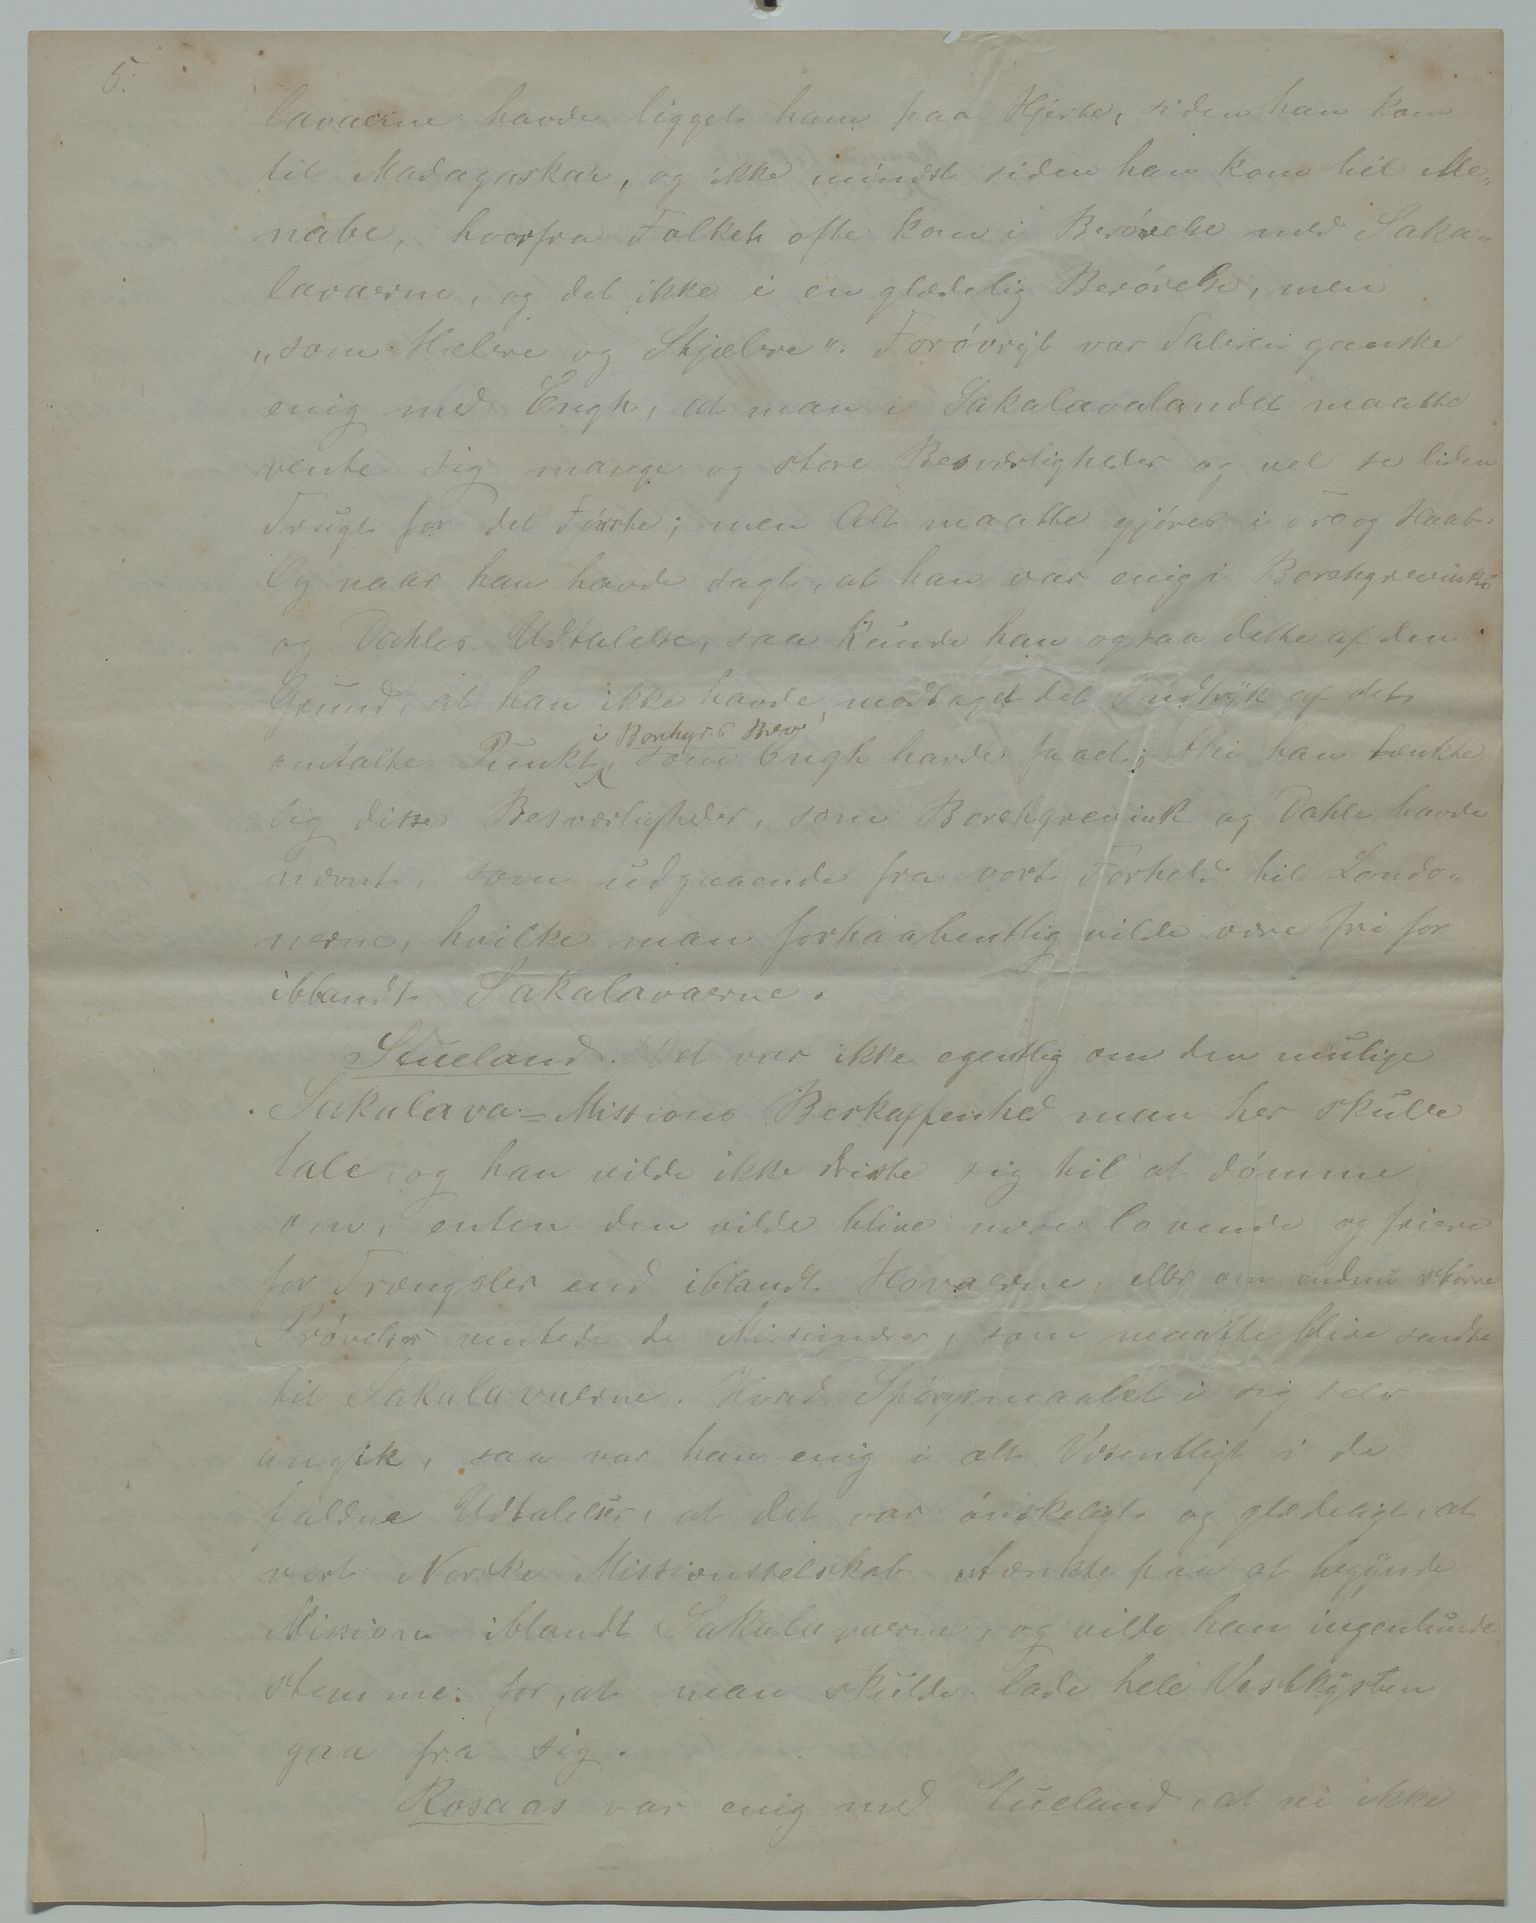 5.
lavaerne havde ligget ham paa Hjerte, siden han kom
til Madagaskar, og ikke mindst siden han kom til Me„
nabe, hvorfra Folket ofte kom i Berørelse med Saka„
lavaerne, og det ikke i en glædelig Berørelse, men
„som Hælere og Stjælere“. Forøvrigt var Taleren ganske
enig med Engh, at man i Sakalavalandet maatte
vente sig mange og store Besværligheder og vel se liden
Frugt for det Første; men Alt maatte gjøres i Tro og Haab.
Og naar han havde sagt, at han var enig i Borchgrevinks
og Dahles Udtalelse, saa kunde han ogsaa dette af den
Grund, at han ikke havde modtaget det Indtryk af det
i Borchgr.s Brev
omtalte Punkt, som Engh havde faaet; thi han tænkte
sig disse Besværligheder, som Borchgrevink og Dahle havde
nævnt, som udgaaende fra vort Forhold til Londo„
nerne, hvilke man forhaabentlig vilde være fri for
iblandt Sakalavaerne.
Stueland. Det var ikke egentlig om den mulige
Sakalava-Missions Beskaffenhed man her skulde
tale, og han vilde ikke driste sig til at dømme
om, enten den vilde blive mere lovende og friere
for Trængsler end iblandt Hovaerne, eller om endnu større
Prøvelser ventede de Missionærer, som maatte blive sendte
til Sakalavaerne. Hvad Spørgsmaalet i sig selv
angik, saa var han enig i alt Væsentligt i de
faldne Udtalelser, at det var ønskeligt og glædeligt, at
vort Norske Missionsselskab tænkte paa at begynde
Mission iblandt Sakalavaerne, og vilde han ingenlunde
stemme for, at man skulde lade hele Vestkysten
gaa fra sig.
Rosaas var enig med Stueland, at vi ikke